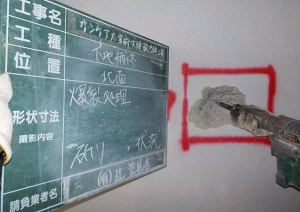 工事名
工種 下地補修
位置 北面
爆裂処理
形状寸法
撮影内容
斫り 状況
請負業者名 (有)